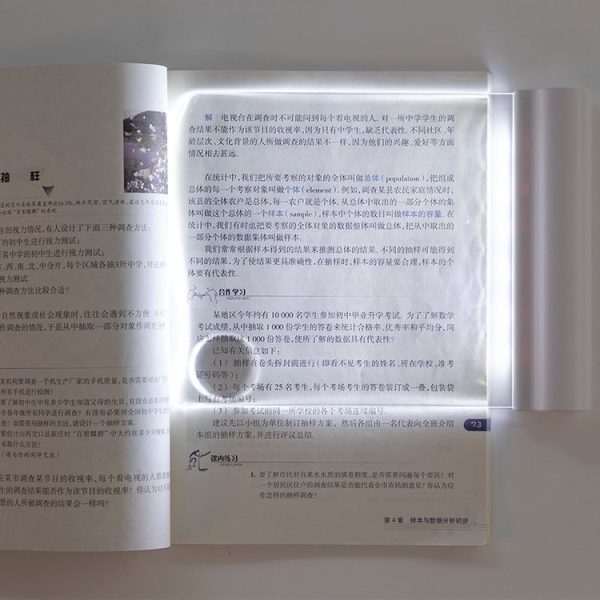 抽 样
生的视力情况,有人设计了下面三种调查方法:
的初中生进行视力测试;
名中学的初中生进行视力测试;
东、西、南、北、中分片,每个区域各抽3所中学,对这
视力测试.
种调查方法比较合适?
自然现象或社会现象时,往往会遇到不方便、不
作调查的情况,于是从中抽取一部分对象作调查分
某机构要调查一手机生产厂家的手机质量,是否需要对
所有手机进行检测?
要了解初中生中有多少学生知道父母的生日,有没有必要对
中各年级所有同学进行调查?有没有必要对全国初中生
查?如需要同学用抽样的方法,请设计一个抽样方案.
要估计山西文口县新生村“百里蝶群”中大约有多少只蝴蝶
采取什么方法?
(请与你的同伴交流)
在某市调查某节目的收视率,每个看电视的人都要
生的调查结果能否作为该节目的收视率?你认为对不
景的人所做调查的结果会一样吗?
解 电视台在调查时不可能问到每个看电视的人.对一所中学学生的调
查结果不能作为该节目的收视率,因为只有中学生,缺乏代表性.不同社区、年
龄层次、文化背景的人所做调查的结果不一样,因为他们的兴趣、爱好等方面
情况相去甚远.
在统计中,我们把所要考察的对象的全体叫做总体(population),把组成
总体的每一个考察对象叫做个体(element).例如,调查某县农民家庭情况时,
该县的全体农户是总体,每一农户就是个体.从总体中取出的一部分个体的集
体叫做这个总体的一个样本(sample),样本中个体的数目叫做样本的容量.在
统计中,我们有时也把要考察的全体对象的数据整体叫做总体,把从中取出的
一部分个体的数据集体叫做样本.
我们常常根据样本得到的结果来推测总体的结果.不同的抽样可能得到
不同的结果.为了使结果更具准确性,在抽样时,样本的容量要合理,样本的个
体要有代表性.
合作学习
某地区今年约有10 000名学生参加初中毕业升学考试.为了了解数学
考试成绩,从中抽取1 000份学生的答卷来统计合格率、优秀率和平均分,问
应怎样抽取这1 000份答卷,使所了解的数据具有代表性?
已知有关信息如下:
(1) 抽样在卷头拆封前进行(即看不见考生的姓名、所在学校、准考
证号码等);
(2) 每个考场有25名考生,每个考场考生的答卷装订成一叠,包装袋
上写有考场编号;
(3) 参加考试的同一所学校的各个考场连续编号.
建议先以小组为单位制订抽样方案,然后各组由一名代表向全班介绍
本组的抽样方案,并进行评议总结.
73
课内练习
1. 要了解市民对自来水水质的满意程度,是否需要问遍每个市民?对
一个居民区住户的调查结果是否能代表全市市民的意见?你认为应
作怎样的抽样调查?
第4章 样本与数据分析初步